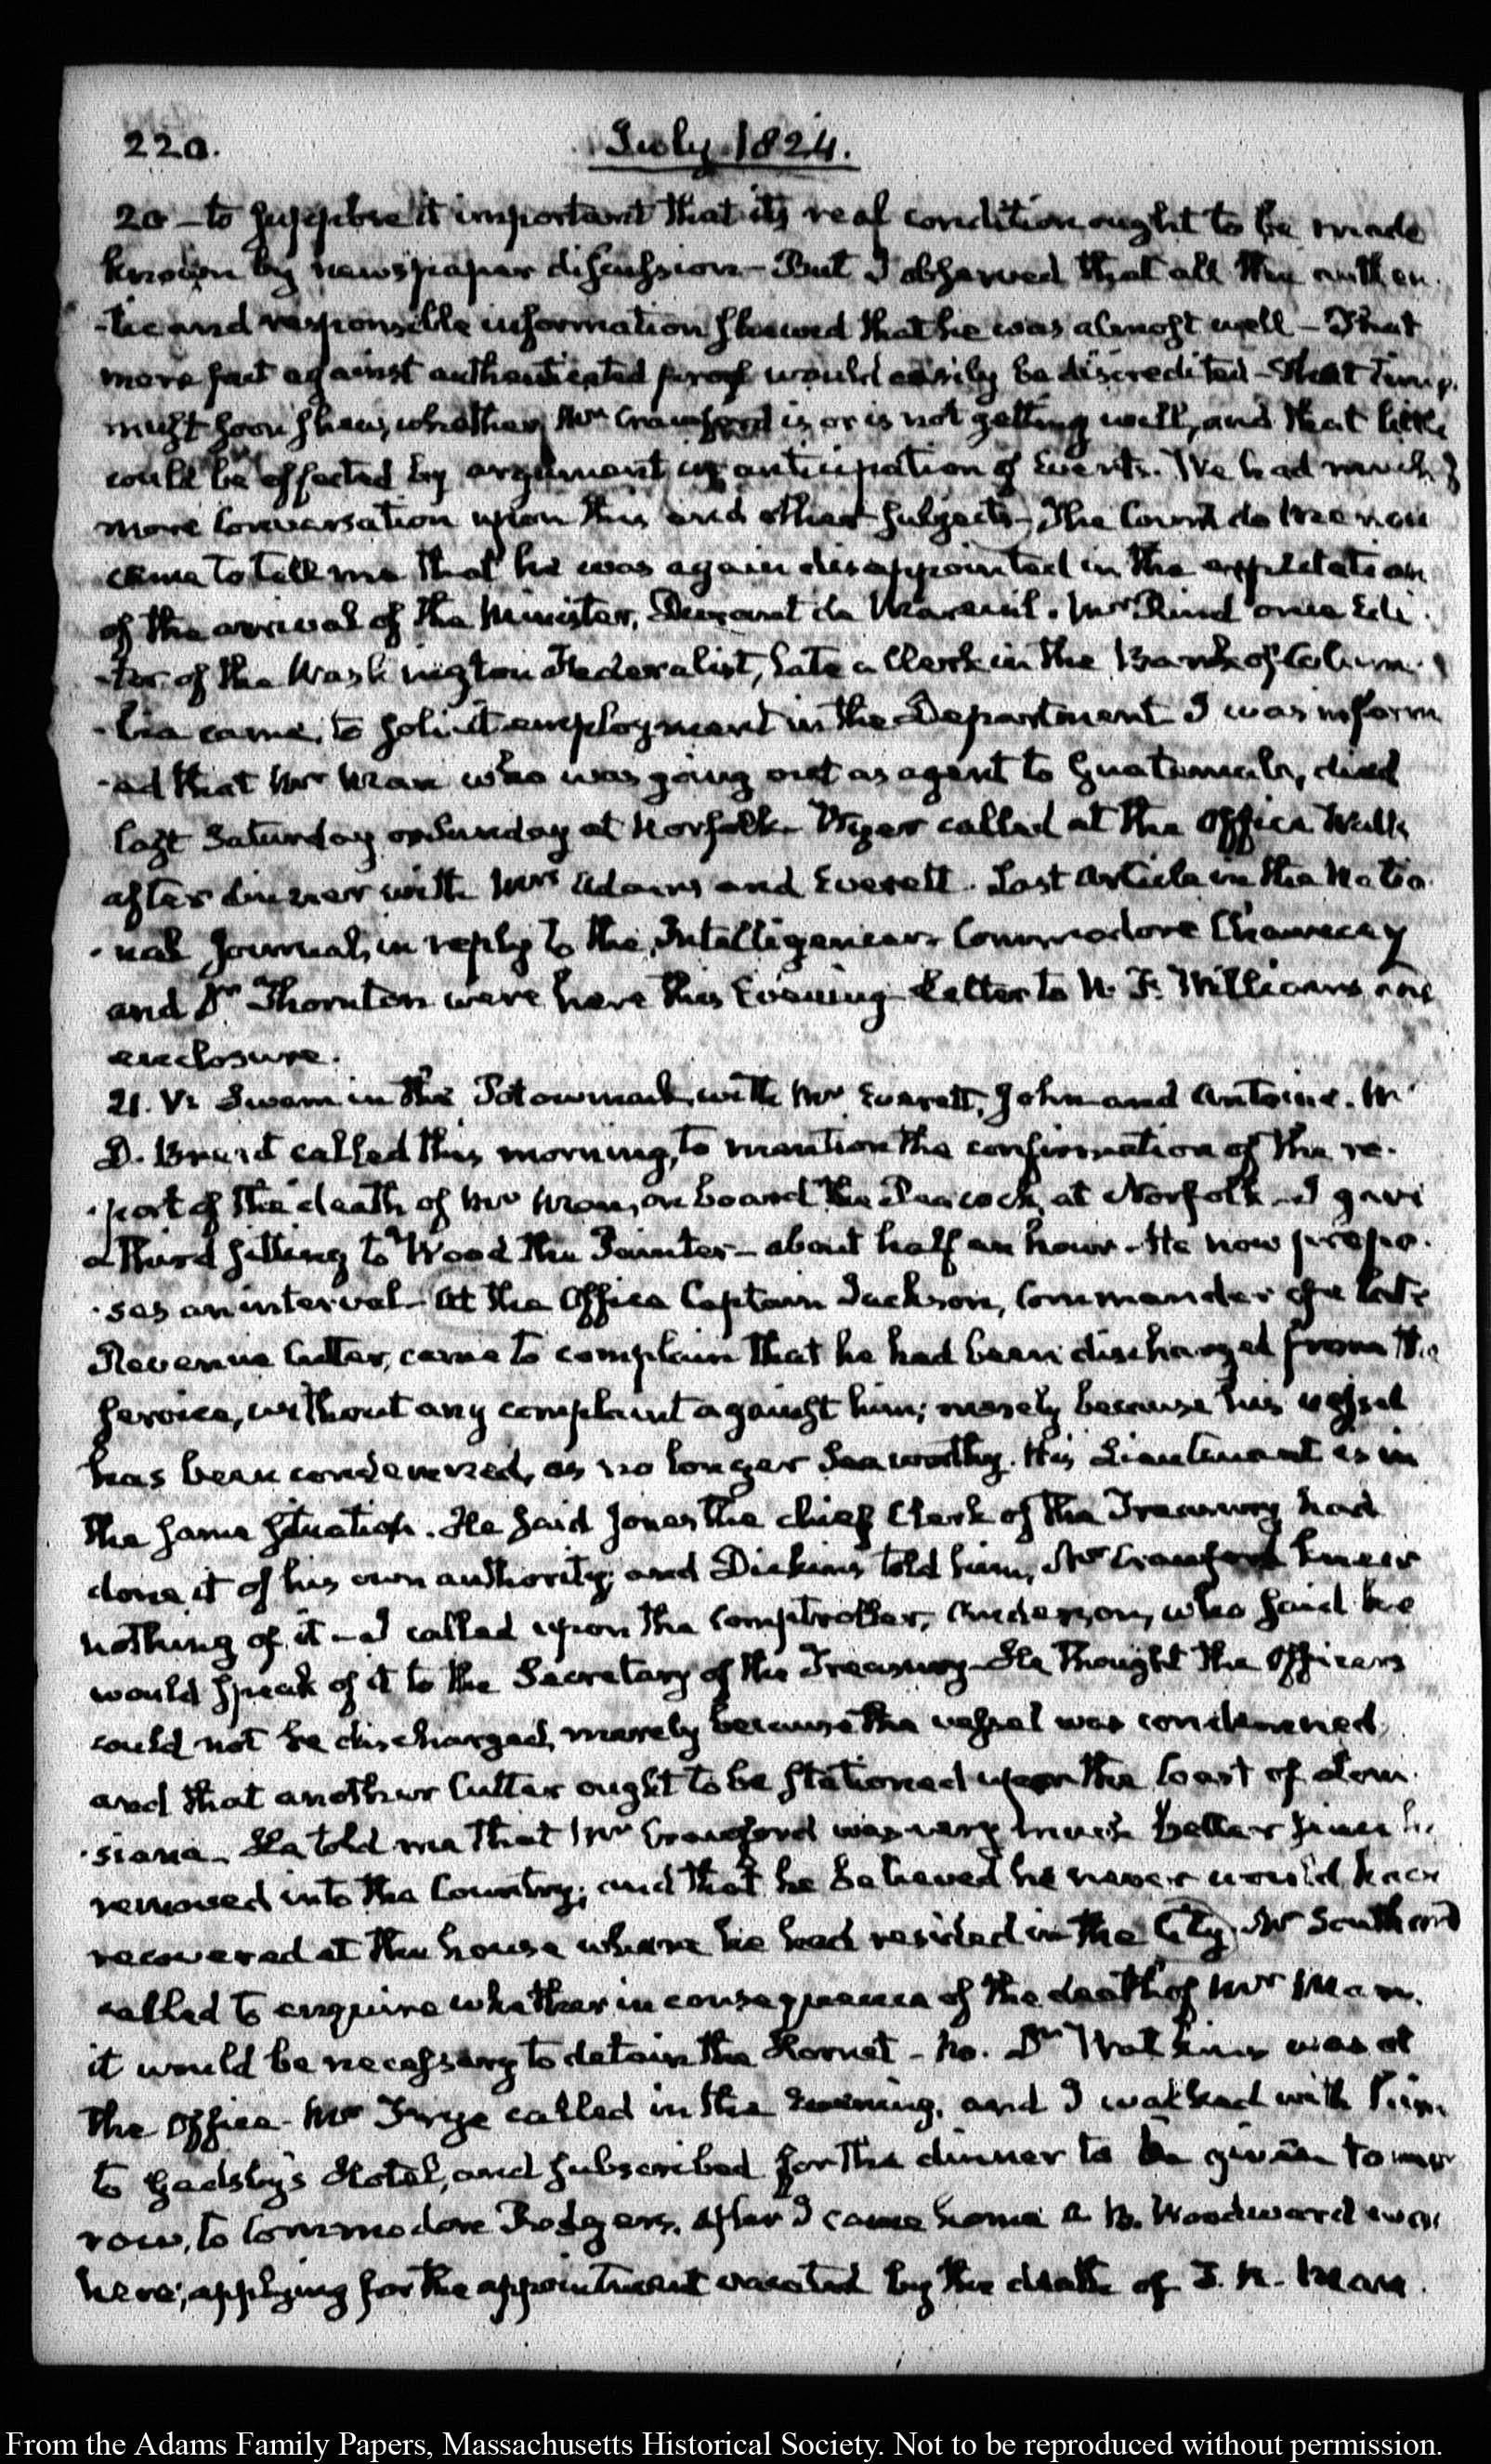 220.
July 1824.
20 – to suppose it important that its real condition ought to be made
known by newspaper discussion – But I observed that all the authen-
-tic and responsible information shewed that he was almost well – That
mere against authenticated proof would easily be discredited – That time
must soon shew, whether Mr Crawford is or is not getting well, and that little
could be effected by argument in anticipation of Events. We had much
more Conversation upon this and other subjects – The Count de Menou
came to tell me that he was again disappointed in the expectation
of the arrival of the Minister, Durant de Mareuil. Mr Rind once Edi-
-tor of the Washington Federalist, late a Clerk in the Bank of Colum-
-bia came, to solicit employment in the Department I was inform
-ed that Mr Mann who was going out as agent to Guatemala, died
last Saturday or Sunday at Norfolk – called at the Office Walk
after dinner with Mrs Adams and Everett. Last Article in the Natio-
-nal Journal, in reply to the Intelligencer. Commodore Chauncey
and Dr Thornton were here this Evening – Letter to N. F. Williams and
enclosure.
21. VI. Swam in the Potowmack with Mr Everett, John and Antoine. Mr
D. Brent called this morning, to mention the confirmation of the re-
-port of the death of Mr Mann, on board the Peacock, at Norfolk – I gave
a third sitting to Wood the Painter – about half an hour – He now propo-
-ses an interval – At the Office Captain Jackson, Commander of a late
Revenue Cutter, came to complain that he had been discharged from the
service, without any complaint against him; merely because his vessel
has been condemned, as no longer Seaworthy. His Lieutenant is in
the same situation. He said Jones the chief Clerk of the Treasury had
done it of his own authority; and Dickins told him, Mr Crawford knew
nothing of it – I called upon the Comptroller, Anderson, who said he
would speak of it to the Secretary of the Treasury – He thought the Officers
could not be discharged, merely because the vessel was condemned
and that another Cutter ought to be stationed upon the Coast of Loui-
-siana – He told me that Mr Crawford was very much better since he
removed into the Country; and that he believed he never would have
recovered at the house where he had resided in the City. Mr Southard
called to enquire whether in consequence of the death of Mr Mann,
it would be necessary to detain the Hornet – No. Dr Watkins was at
the Office – Mr Frye called in the Evening, and I walked with him
to Gadsby's Hotel, and subscribed for the dinner to be given tomor
row, to Commodore Rodgers. After I came home A. B. Woodward was
here; applying for the appointment vacated by the death of J. N. Mann.
From the Adams Family Papers, Massachusetts Historical Society. Not to be reproduced without permission.